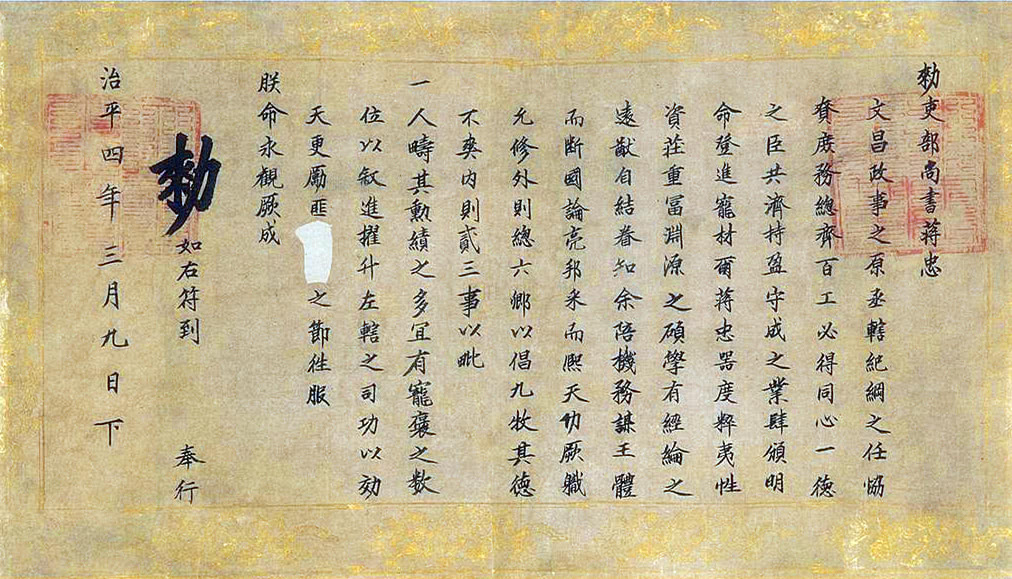 勑吏部尚書蔣忠
文昌政事之原丞轄紀綱之任恊
賚庶務總齊百工必得同心一徳
之臣共濟持盈守成之業肆頒明
命登進寵材爾蔣忠器度粹夷性
資莊重冨淵源之碩學有經綸之
遠猷自結眷知余陪機務謀王體
而断國論亮邦采而熈天功厥軄
允修外則總六卿以倡九牧其徳
不爽内則貳三事以毗
一人疇其勲績之多冝有寵襃之数
位以叙進擢升左轄之司功以効
天更勵匪之節徃服
朕命永觀厥成
勑
如右符到 奉行
治平四年三月九日下